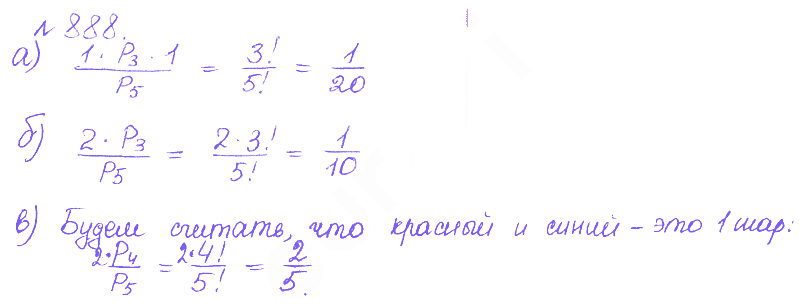 № 888.
а) (1 · P₃ · 1)/P₅ = 3!/5! = 1/20
б) (2 · P₃)/P₅ = (2 · 3!)/5! = 1/10
в) Будем считать, что красный и синий – это 1 шар:
(2 · P₄)/P₅ = (2 · 4!)/5! = 2/5.